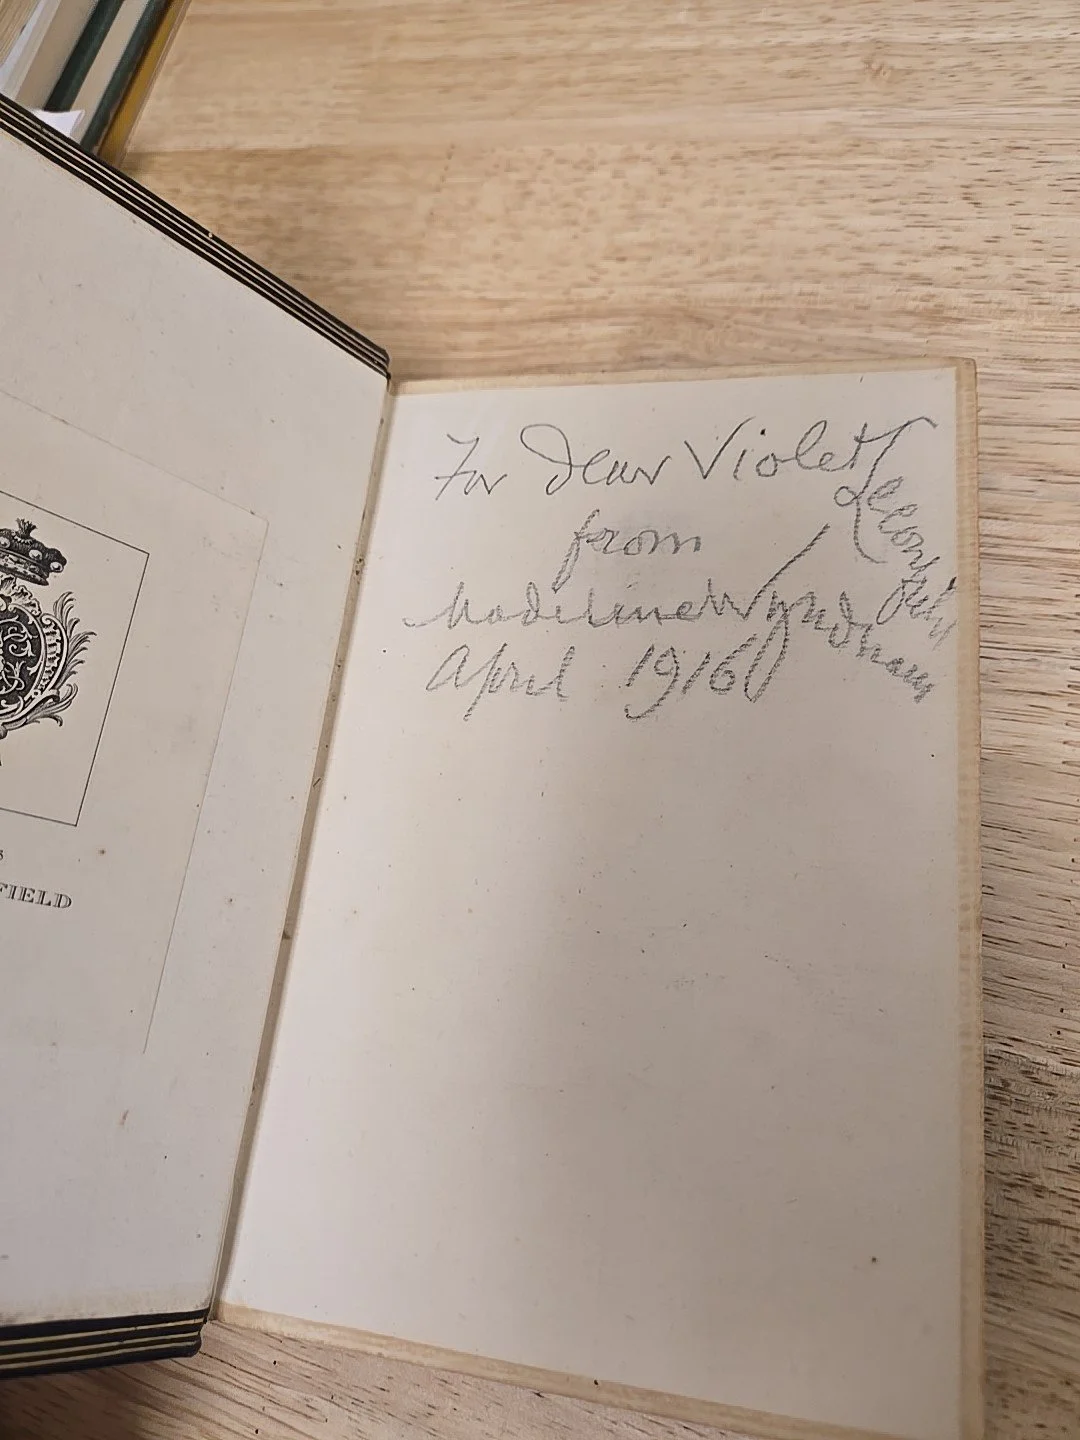 For Dear Violet Leconfield
from
Madeline Wyndham
April 1916
S
FIELD